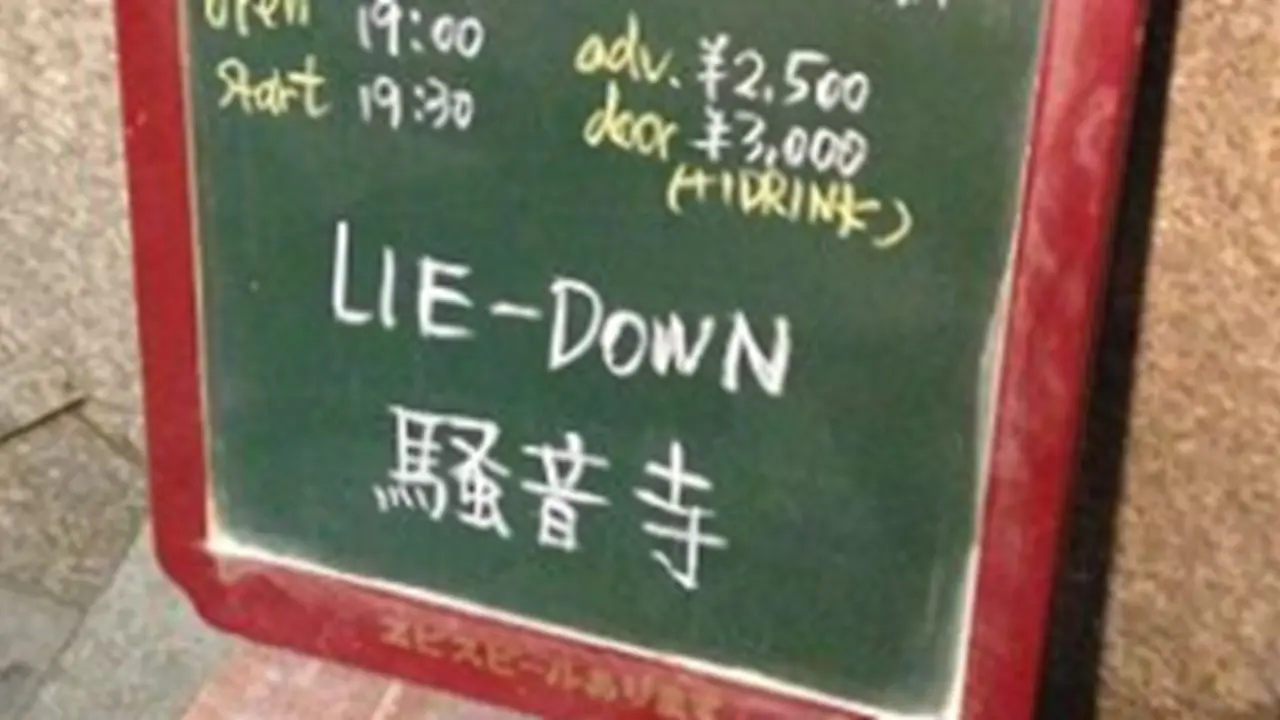 open 19:00
start 19:30
adv. ¥2,500
door ¥3,000
(+1DRINK)
LIE-DOWN
騒音寺
ヱビスビールあります